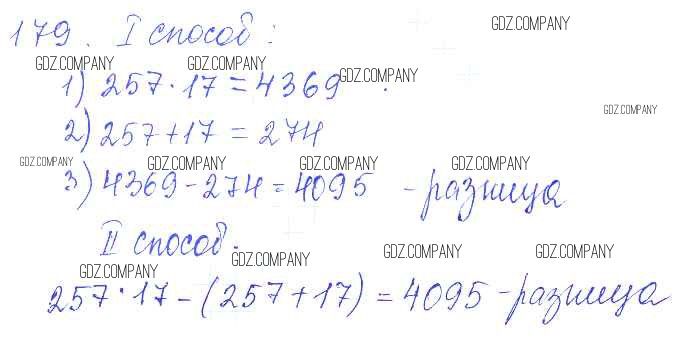 179. I способ:
GDZ.COMPANY
GDZ.COMPANY GDZ.COMPANY GDZ.COMPANY
1) 257·17=4369
GDZ.COMPANY
2) 257+17=274
GDZ.COMPANY GDZ.COMPANY GDZ.COMPANY GDZ.COMPANY
3) 4369-274=4095 -разница
II способ.
GDZ.COMPANY GDZ.COMPANY GDZ.COMPANY GDZ.COMPANY
257·17-(257+17)=4095-разница